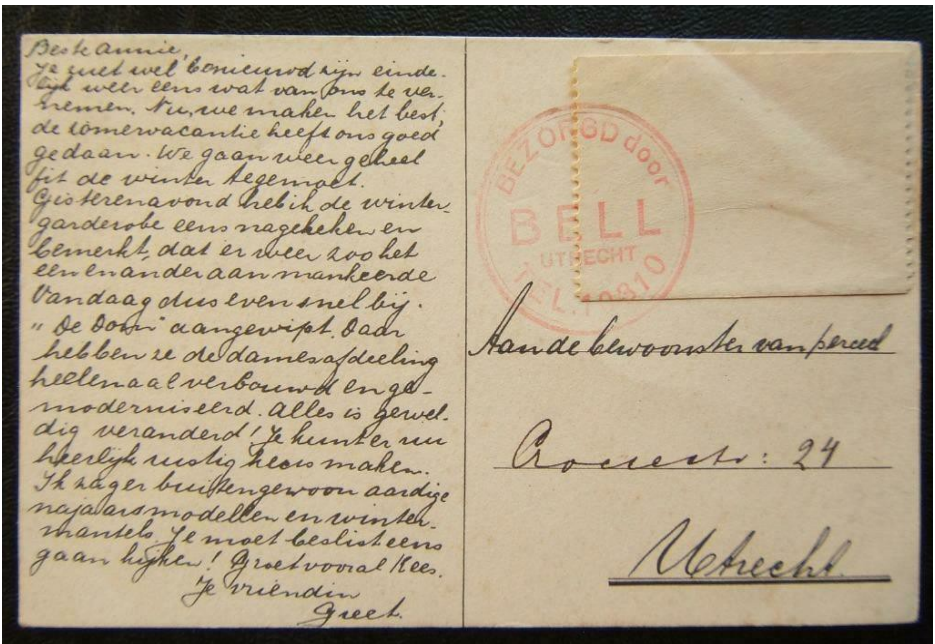 Beste Annie,
Je zuet wel benieuwd zijn einde-
lijk weer eens wat van ons te ver-
nemen. Nu, we maken het best,
de zomervacantie heeft ons goed
gedaan. We gaan weer geheel
fit de winter tegemoet.
Gisterenavond heb ik de winter-
garderobe eens nagekeken en
bemerkt, dat er weer zoo het
een en ander aan mankeerde
Vandaag dus even snel bij
"De Dom" aangewipt. Daar
hebben ze de damesafdeeling
heelemaal verbouwd en ge-
moderniseerd. Alles is gewel-
dig veranderd! Je kunt er nu
heerlijk rustig keus maken.
Ik zag er buitengewoon aardige
najaarsmodellen en winter-
mantels. Je moet beslist eens
gaan kijken! Groet vooral Kees.
Je vriendin
Greet.
BEZORGD door
BELL
UTRECHT
Aan de bewoonster van perceel
24
Utrecht.